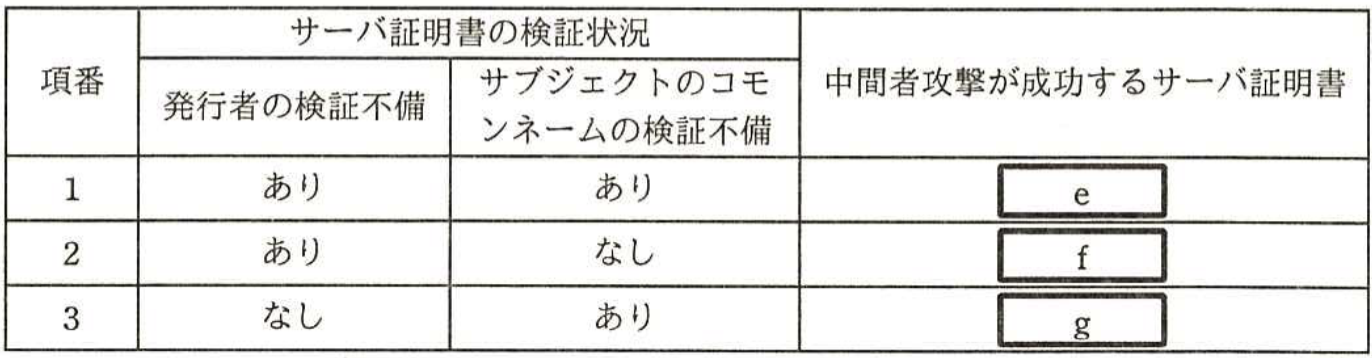 項番
サーバ証明書の検証状況
発行者の検証不備
サブジェクトのコモ
ンネームの検証不備
中間者攻撃が成功するサーバ証明書
1 あり あり e
2 あり なし f
3 なし あり g